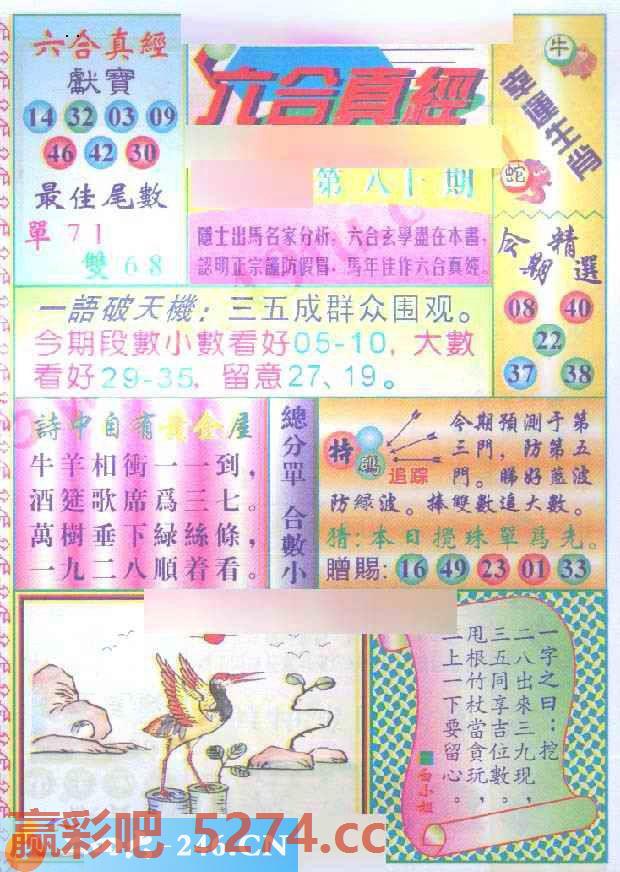 六合真經
獻寶
14 32 03 09
46 42 30
最佳尾數
單71
雙68
六合真經
第八十期
隱士出馬名家分析，六合玄學盡在本書，
認明正宗謹防假冒，馬年佳作六合真經。
牛
幸運生肖
蛇
今期精選
08 40
22
37 38
一語破天機：三五成群众围观。
今期段數小數看好05-10，大數
看好29-35，留意27、19。
詩中自有黃金屋
牛羊相衝一一到，
酒筵歌席爲三七。
萬樹垂下緑絲條，
一九二八順着看。
總分單 合數小
特碼
追踪
今期預測于第
三門，防第五
門。睇好藍波
防緑波。捧雙數追大數。
猜：本日攪珠單爲先。
贈賜：16 49 23 01 33
一字之曰：挖
二八出來三九現，
三五同享吉位數，
甩根竹杖當貪玩，
二上一下要留心。
■白小姐
赢彩吧 5274.cc
246.CN